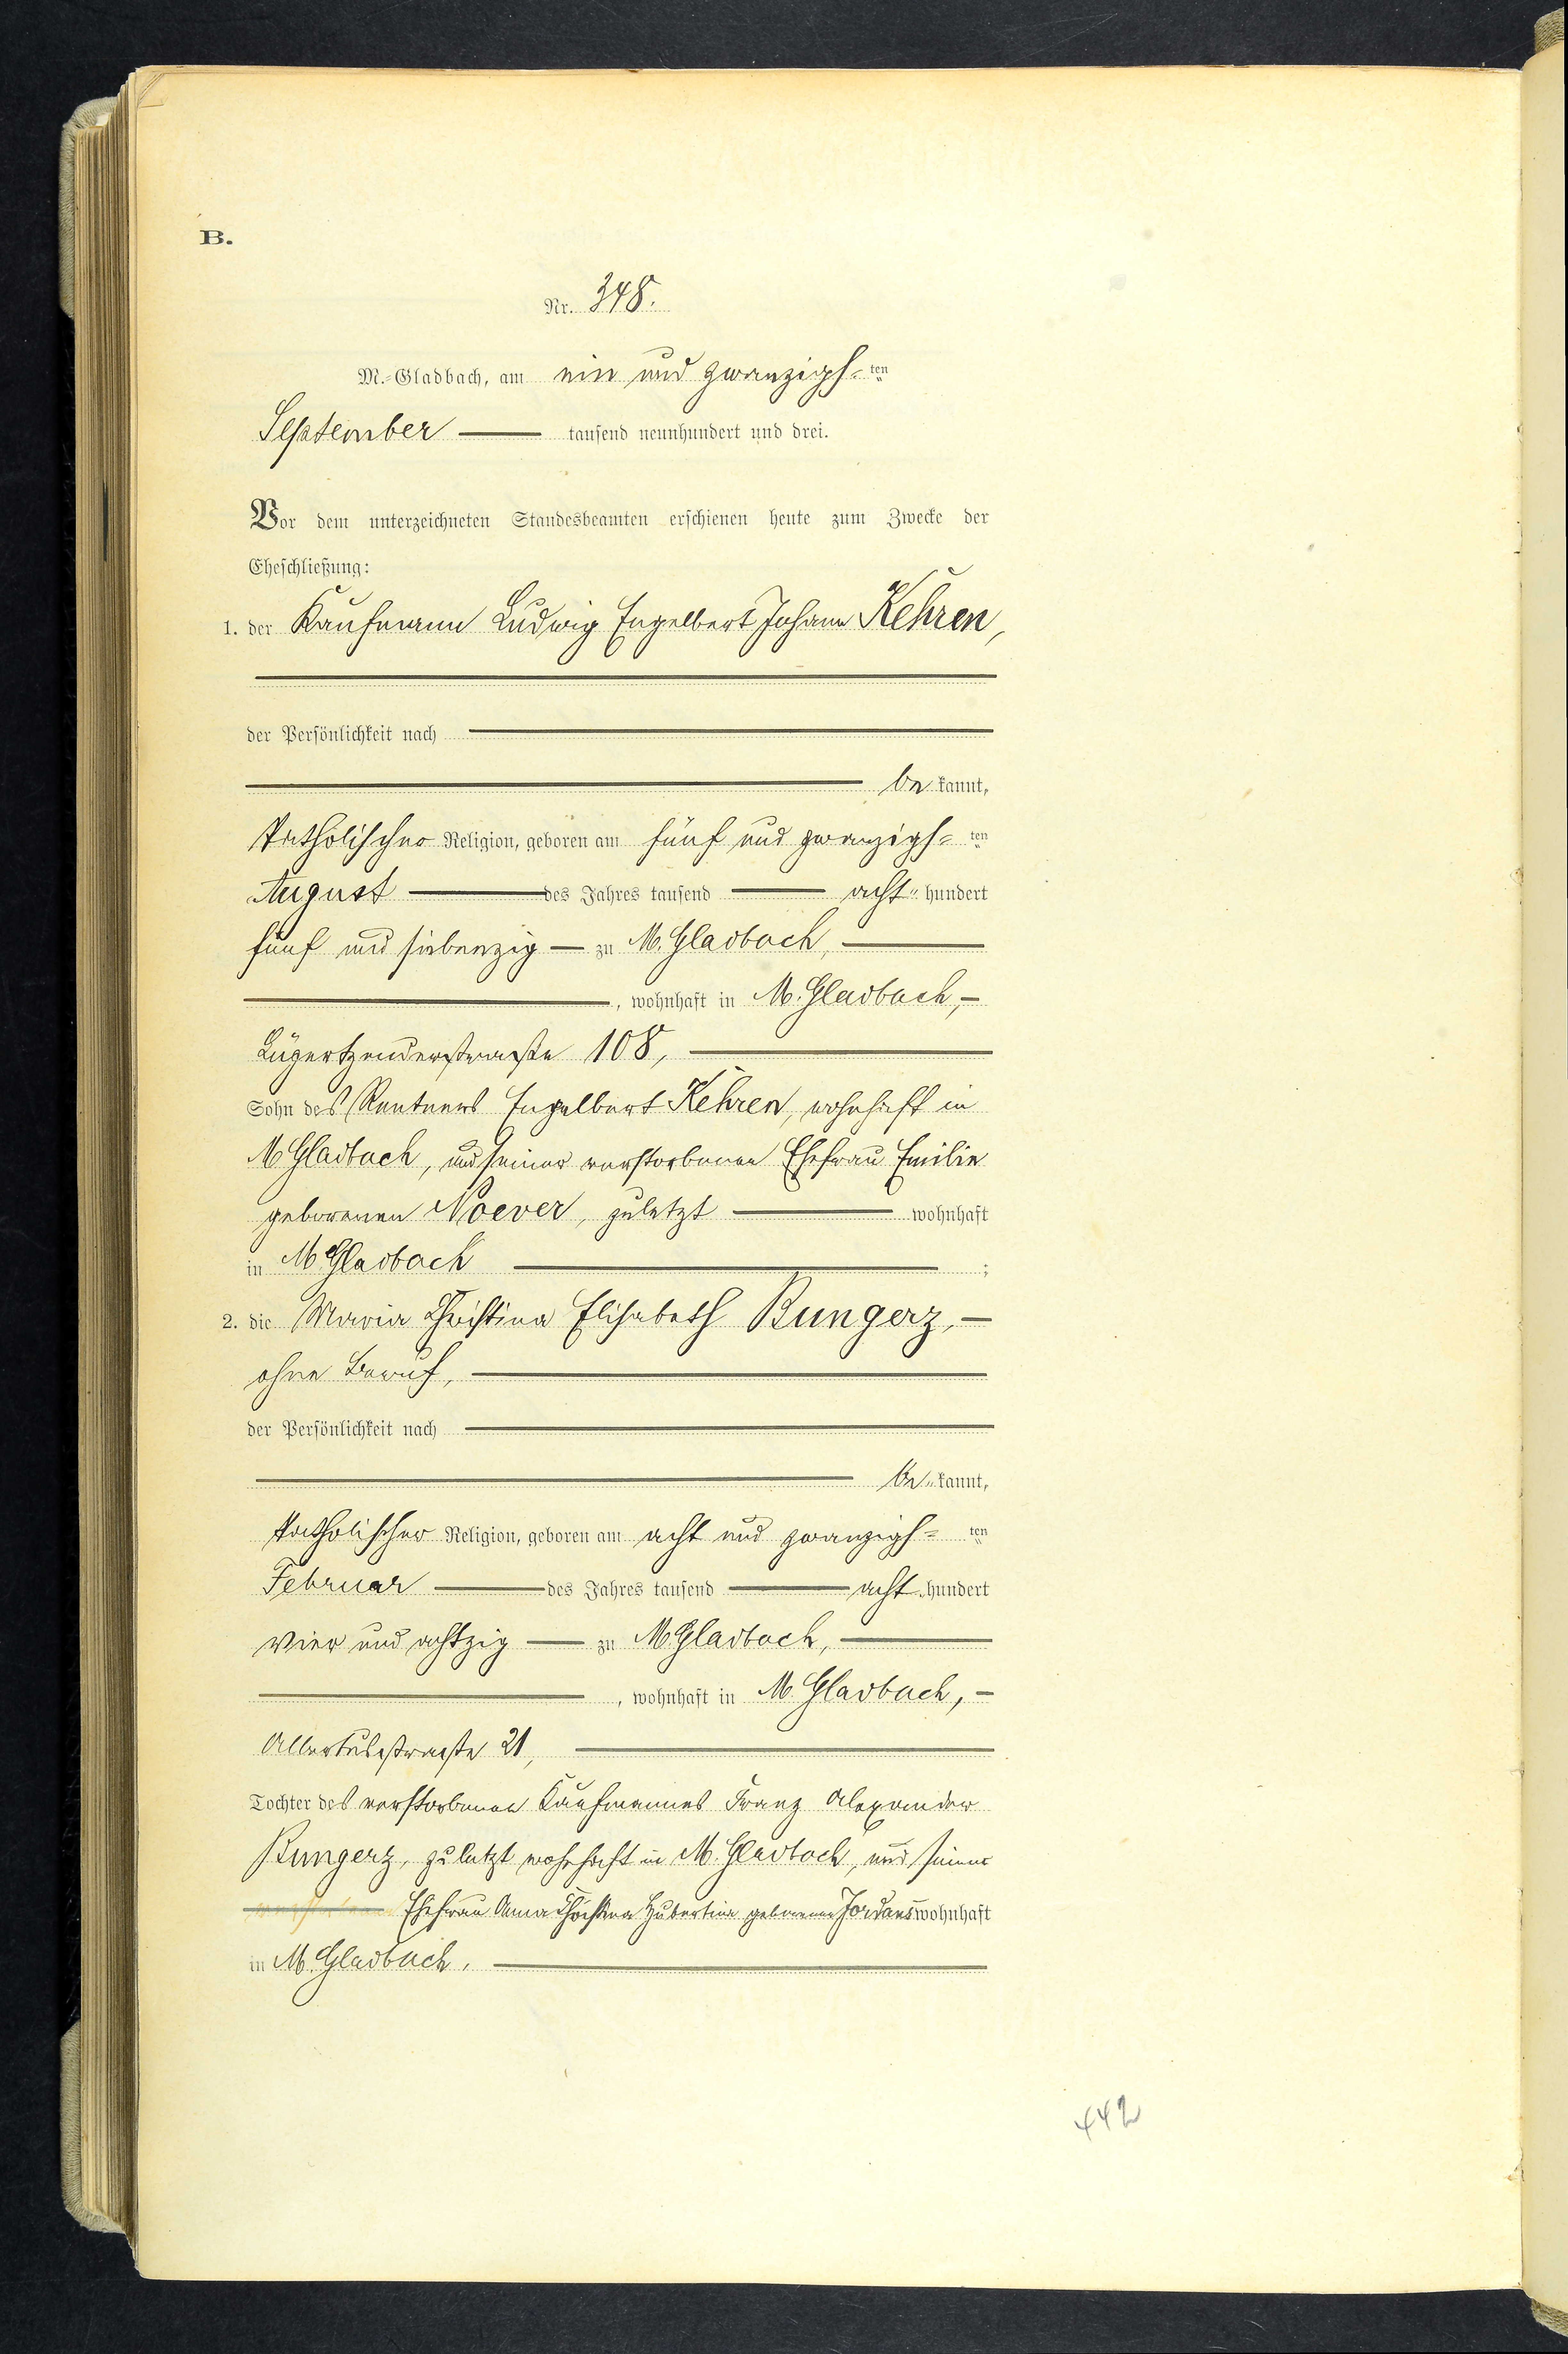 B.
Nr. 348.
M.-Gladbach, am ein und zwanzigs-ten
September tausend neunhundert und drei.
Vor dem unterzeichneten Standesbeamten erschienen heute zum Zwecke der
Eheschließung:
1. der Kaufmann Ludwig Engelbert Johann Kehren,
der Persönlichkeit nach
be kannt,
katholischer Religion, geboren am fünf und zwanzigs=ten
August des Jahres tausend acht hundert
fünf und siebenzig zu M. Gladbach,
, wohnhaft in M. Gladbach,
Lürzertzenderstraße 108,
Sohn des Rentners Engelbert Kehren, wohnhaft in
M Gladbach, und seiner verstorbenen Ehefrau Emilie
geborenen Noever, zuletzt wohnhaft
in M Gladbach ;
2. die Maria Christina Elisabeth Bungerz,
ohne Beruf,
der Persönlichkeit nach
be kannt,
katholischer Religion, geboren am acht und zwanzigs=ten
Februar des Jahres tausend acht hundert
vier und achtzig zu M Gladbach,
, wohnhaft in M. Gladbach,
Albertusstraße 21,
Tochter des verstorbenen Kaufmannes Franz Alexander
Bungerz, zuletzt wohnhaft in M. Gladbach, und seiner
Ehefrau Anna Christina Hubertina geborenen Jordans wohnhaft
in M. Gladbach.
442